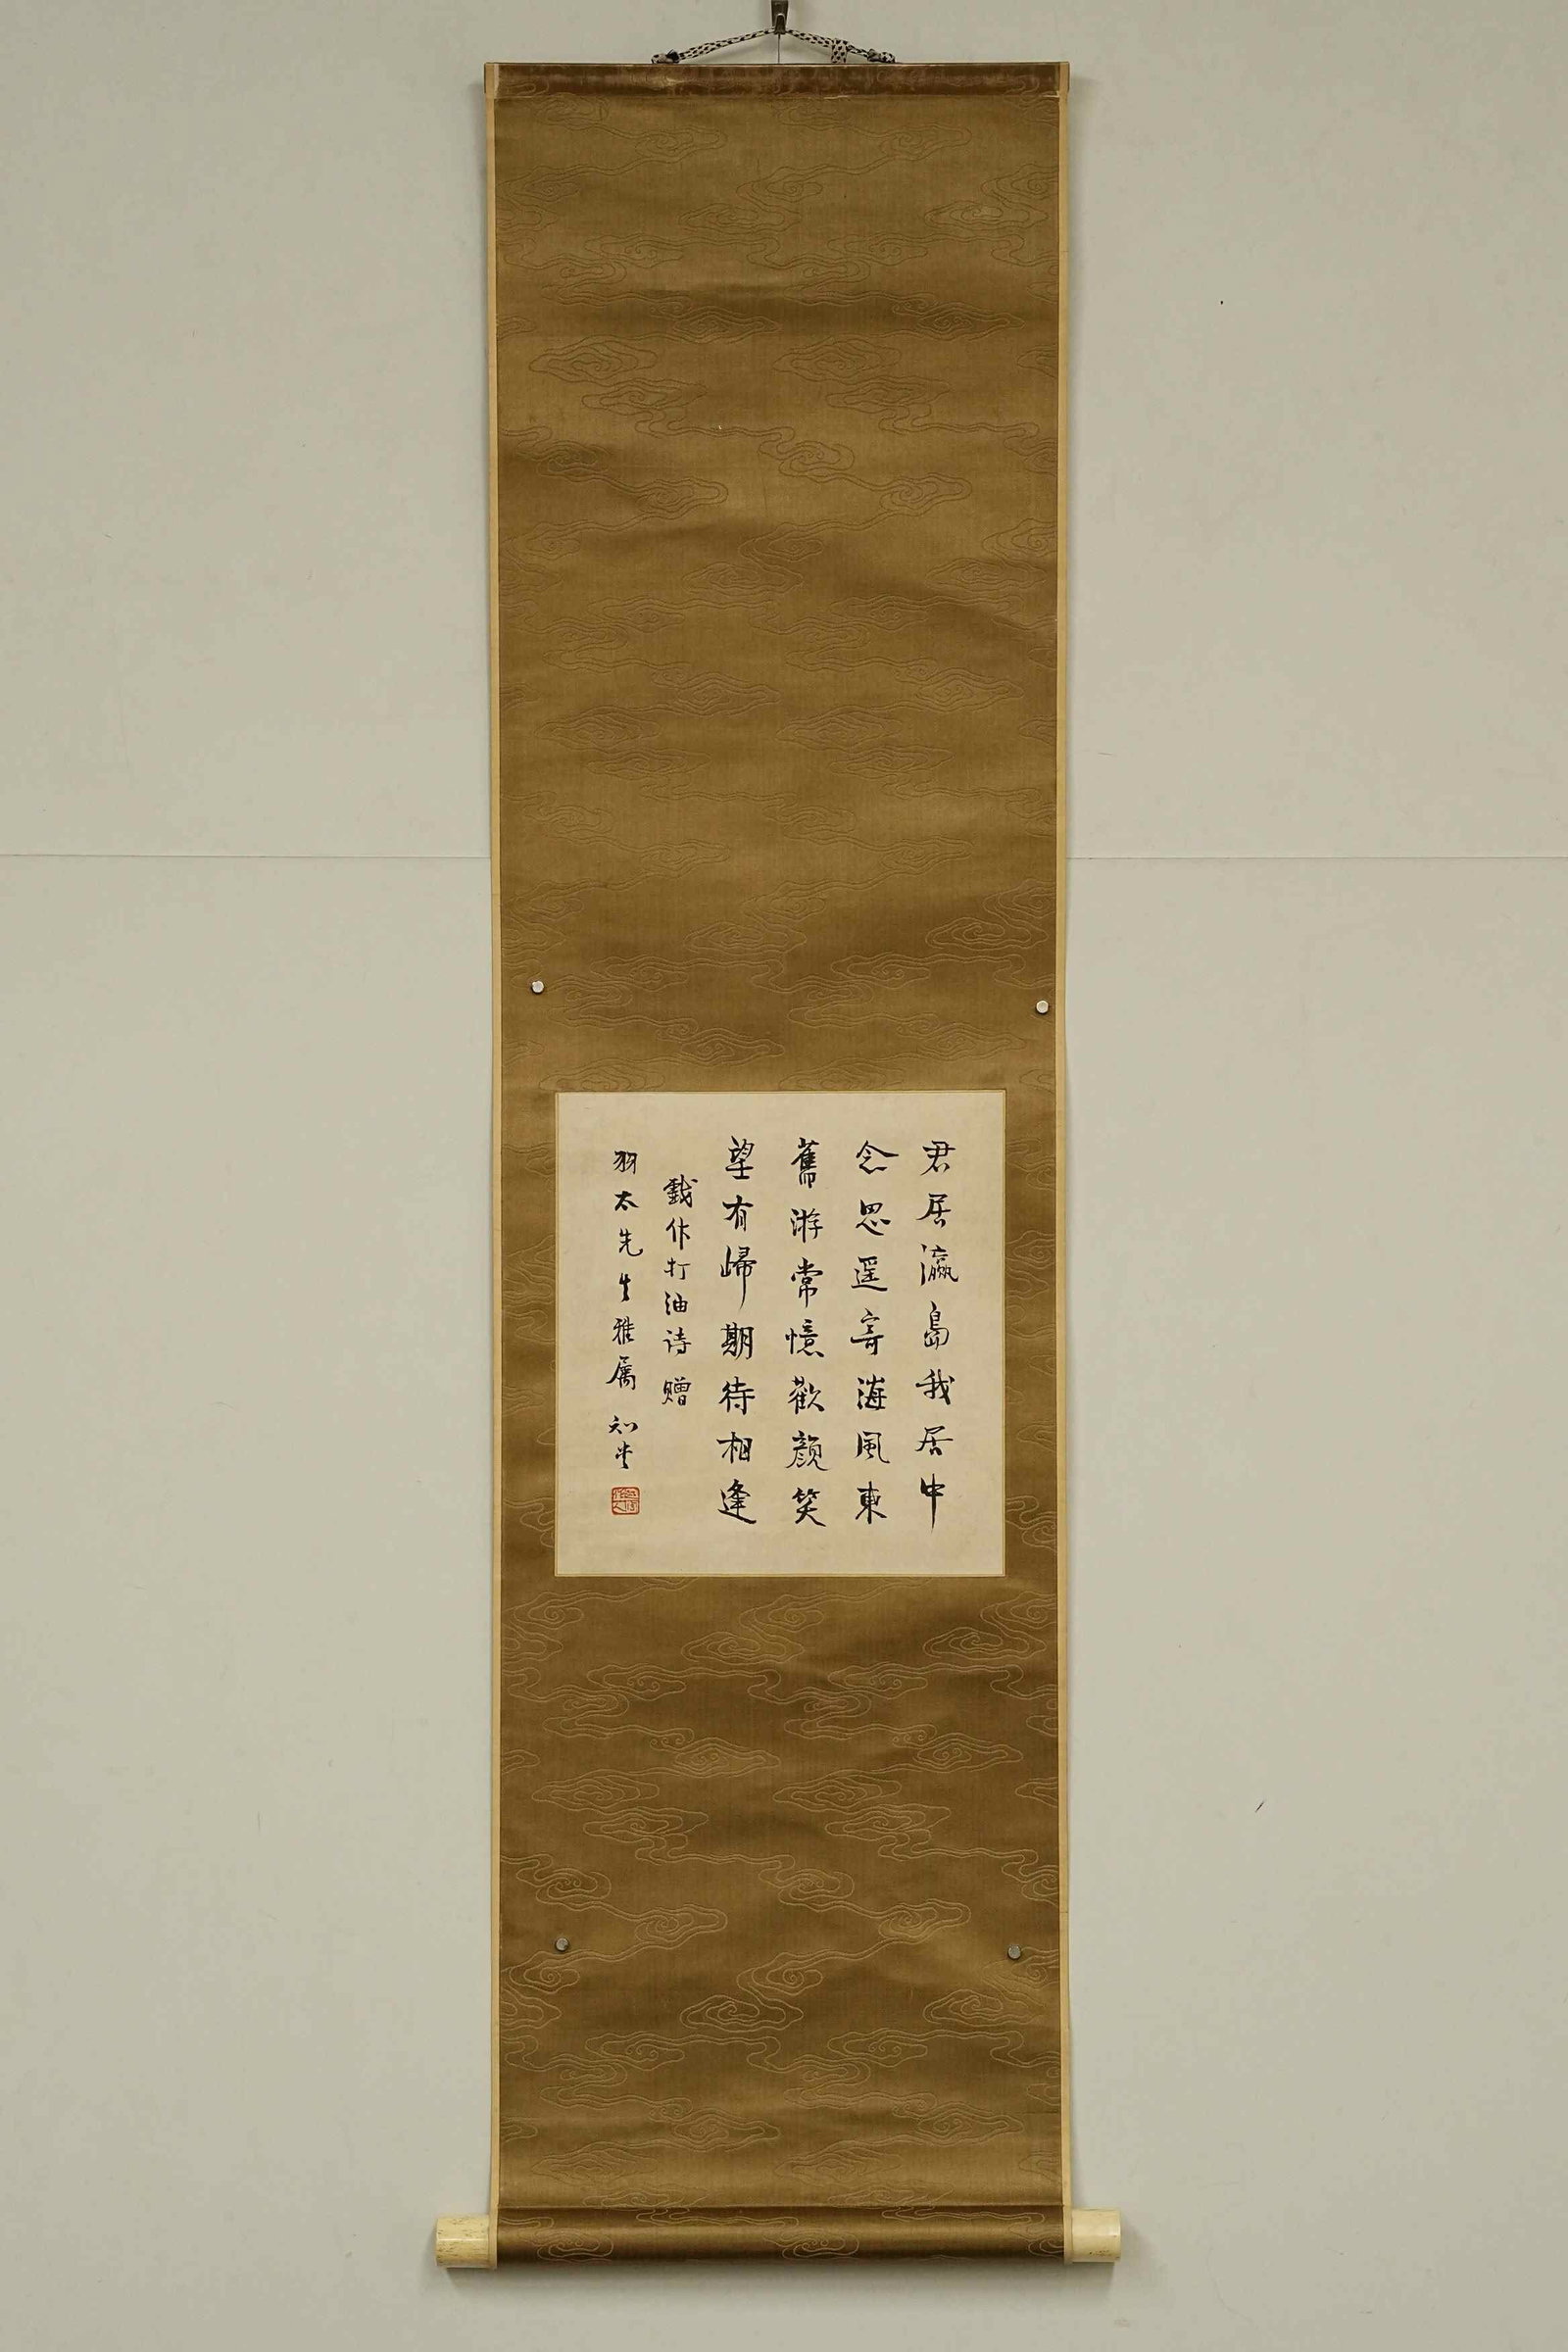 君居瀛島我居中
念思遥寄海風東
舊游常憶歡顏笑
望有歸期待相逢
戲作打油诗赠
羽太先生雅属 知堂